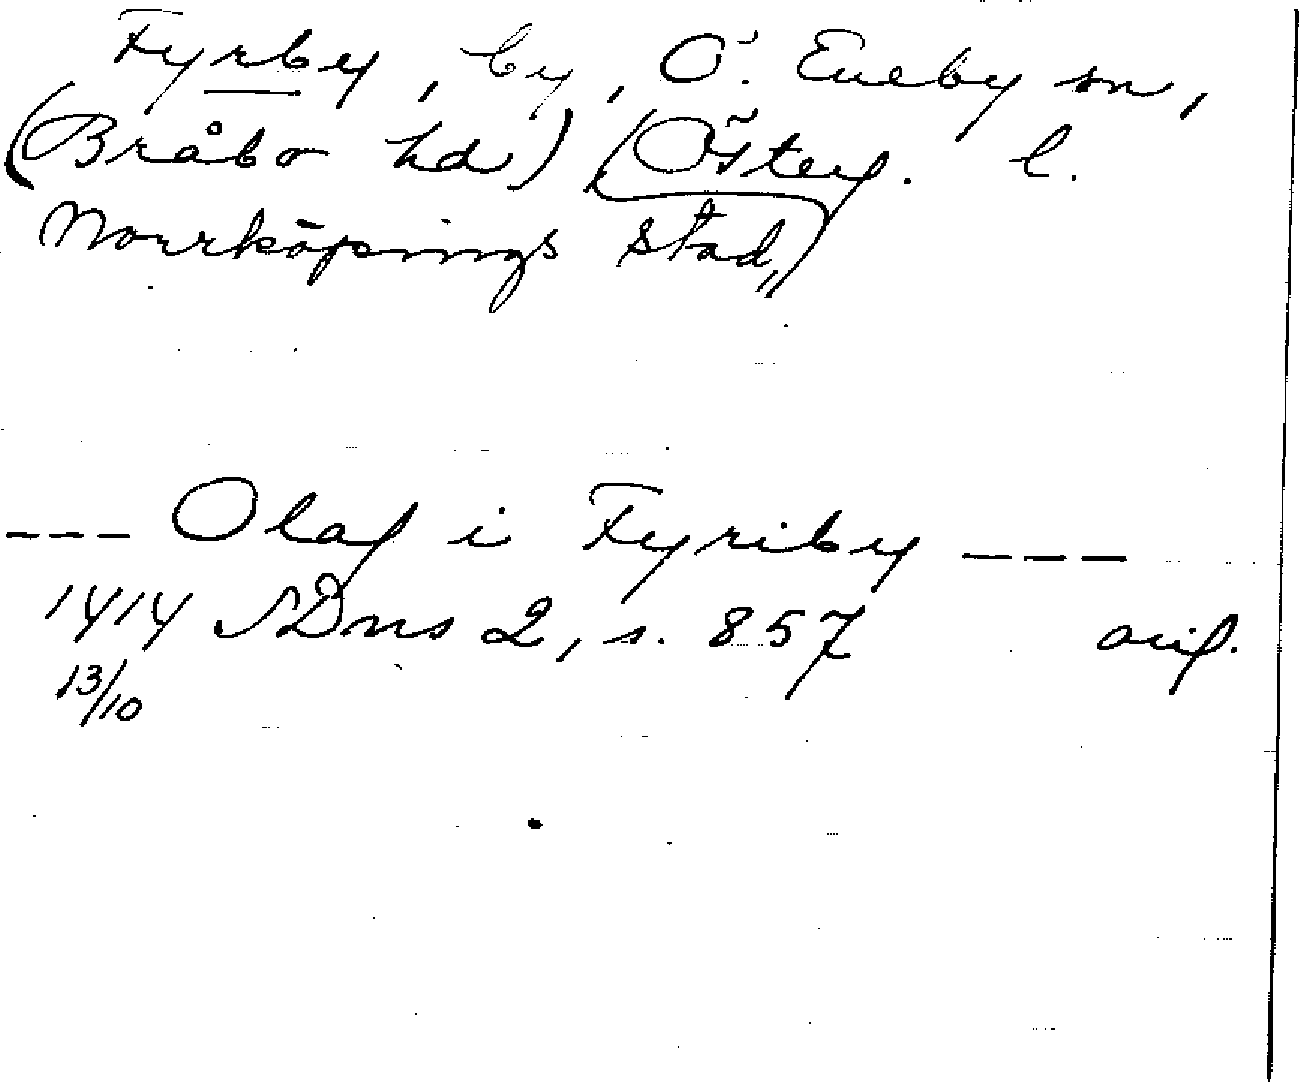 Fyrby, by, Ö. Eneby sn,
(Bråbo hd) (Österg. l.
Norrköpings stad)
--- Olaf i Fyriby ---
1414 SDns 2, s. 857 orig.
13/10